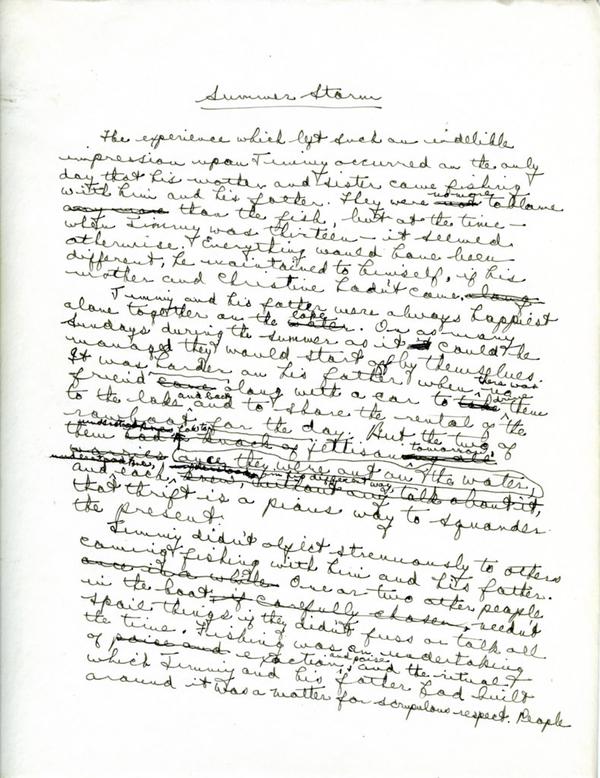 Summer Storm
The experience which left such an indelible
impression upon Timmy occurred on the only
day that his mother and sister came fishing
with him and his father. They were no more to blame
any more than the fish, but at the time -
when Timmy was thirteen - it seemed
otherwise. Everything would have been
different, he maintained to himself, if his
mother and Christine hadn't come along
Timmy and his father were always happiest
alone together on the lake water. On as many
Sundays during the summer as it could be
managed they would start off by themselves.
It was harder on his father when there was no
friend along with a car to take drive them
to the lake and back and to share the rental of the
rowboat for the day. But the two of
them had a knack of jettisoning all tomorrow's
worries once they were out on the water,
and each knew, without any talk about it,
that thrift is a pious way to squander
the present.
Timmy didn't object strenuously to others
coming fishing with him and his father.
once in a while One or two other people
in the boat, if carefully chosen, needn't
spoil things if they didn't fuss or talk all
the time. Fishing was an undertaking
of poise and exaction, and poise and the ritual
which Timmy and his father had built
around it was a matter for scrupulous respect. People